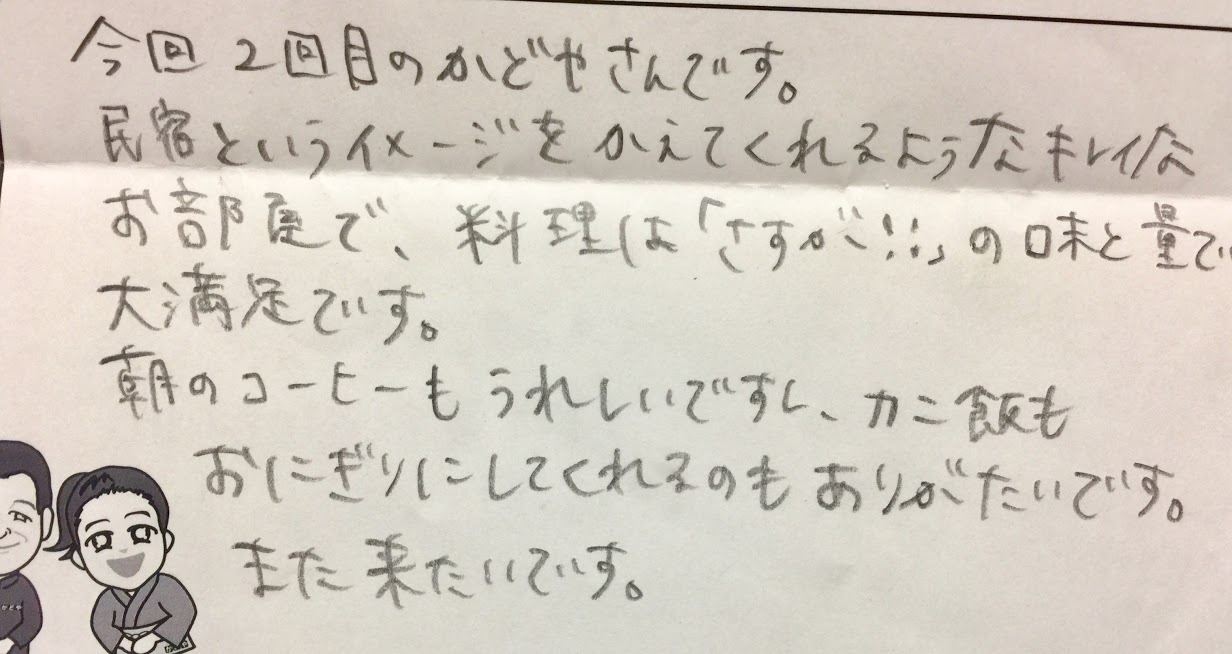 今回2回目のかどやさんです。
民宿というイメージをかえてくれるようなキレイな
お部屋で、料理は「さすが!!」の味と量で
大満足です。
朝のコーヒーもうれしいですし、カニ飯も
おにぎりにしてくれるのもありがたいです。
また来たいです。